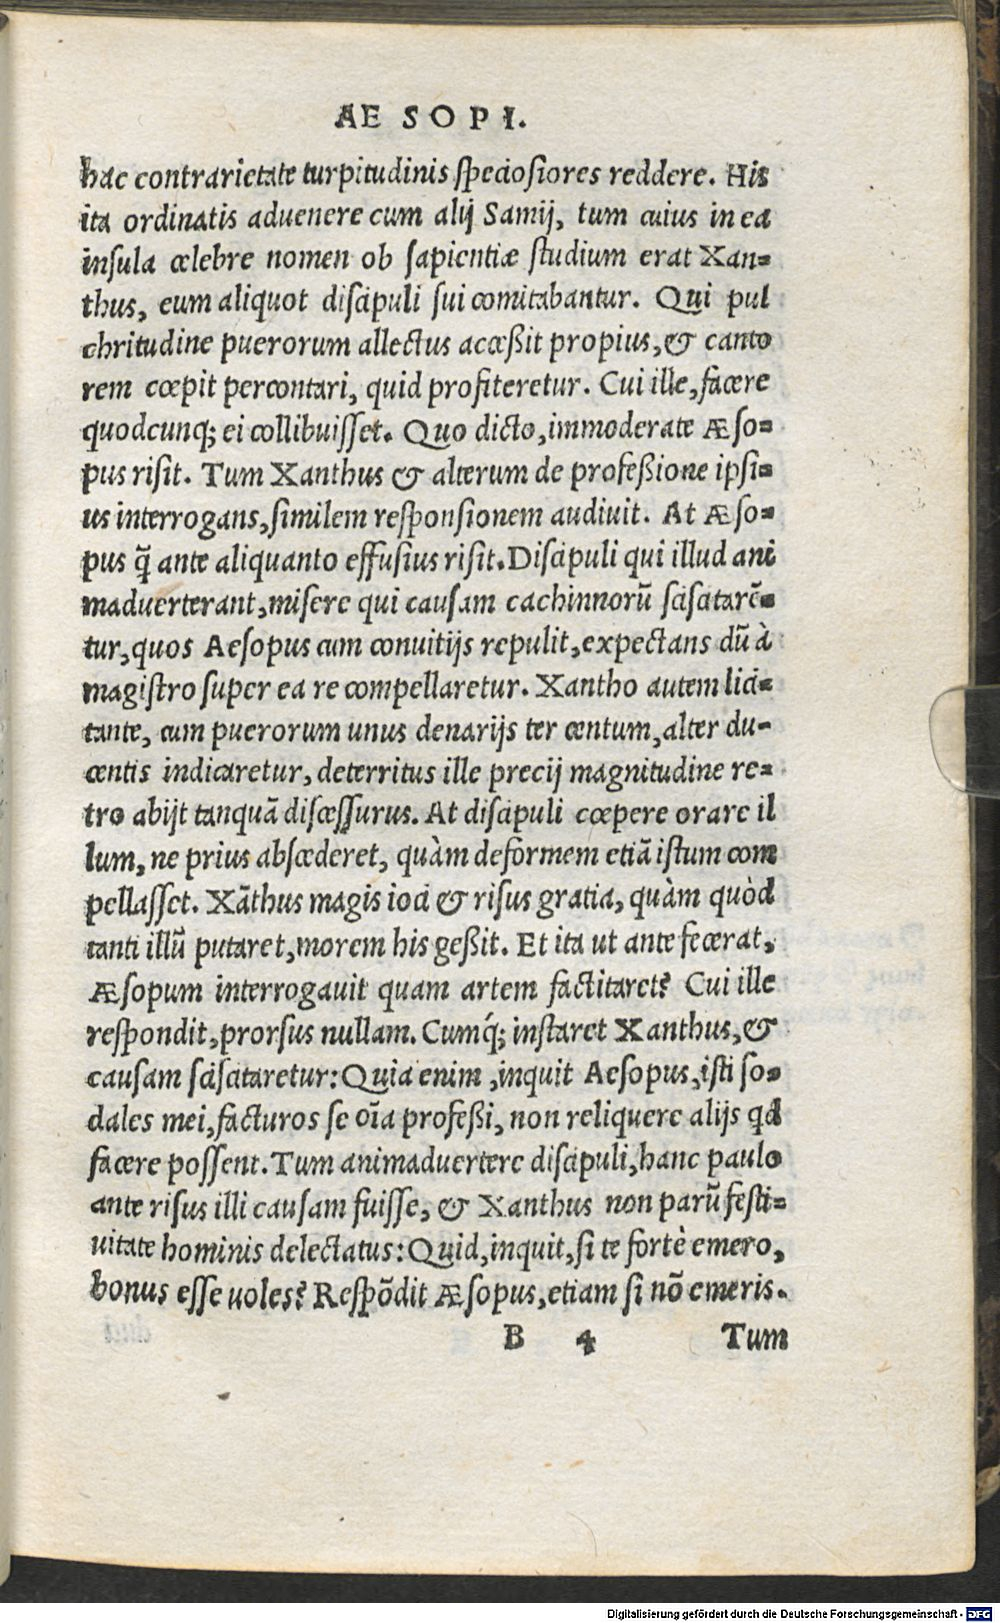 AESOPI.
hac contrarietate turpitudinis speciosiores reddere. His
ita ordinatis aduenere cum alij Samij, tum cuius in ea
insula celebre nomen ob sapientiæ studium erat Xan-
thus, eum aliquot discipuli sui comitabantur. Qui pul
chritudine puerorum allectus acceßit propius, & canto
rem cœpit percontari, quid profiteretur. Cui ille, facere
quodcunq; ei collibuisset. Quo dicto, immoderate Æso-
pus risit. Tum Xanthus & alterum de profeßione ipsi-
us interrogans, similem responsionem audiuit. At Æso-
pus q̃ ante aliquanto effusius risit. Discipuli qui illud ani
maduerterant, misere qui causam cachinnorũ sciscitarẽ-
tur, quos Aesopus cum conuitijs repulit, expectans dũ à
magistro super ea re compellaretur. Xantho autem lici-
tante, cum puerorum unus denarijs ter centum, alter du-
centis indicaretur, deterritus ille precij magnitudine re-
tro abijt tanquã discessurus. At discipuli cœpere orare il
lum, ne prius abscederet, quàm deformem etiã istum com
pellasset. Xãthus magis ioci & risus gratia, quàm quòd
tanti illũ putaret, morem his geßit. Et ita ut ante fecerat,
Æsopum interrogauit quam artem factitaret? Cui ille
respondit, prorsus nullam. Cumq́; instaret Xanthus, &
causam sciscitaretur: Quia enim, inquit Aesopus, isti so-
dales mei, facturos se oĩa profeßi, non reliquere alijs qd
facere possent. Tum animaduertere discipuli, hanc paulo
ante risus illi causam fuisse, & Xanthus non parũ festi-
uitate hominis delectatus: Quid, inquit, si te fortè emero,
bonus esse uoles? Respõdit Æsopus, etiam si nõ emeris.
B 4 Tum
Digitalisierung gefördert durch die Deutsche Forschungsgemeinschaft - DFG